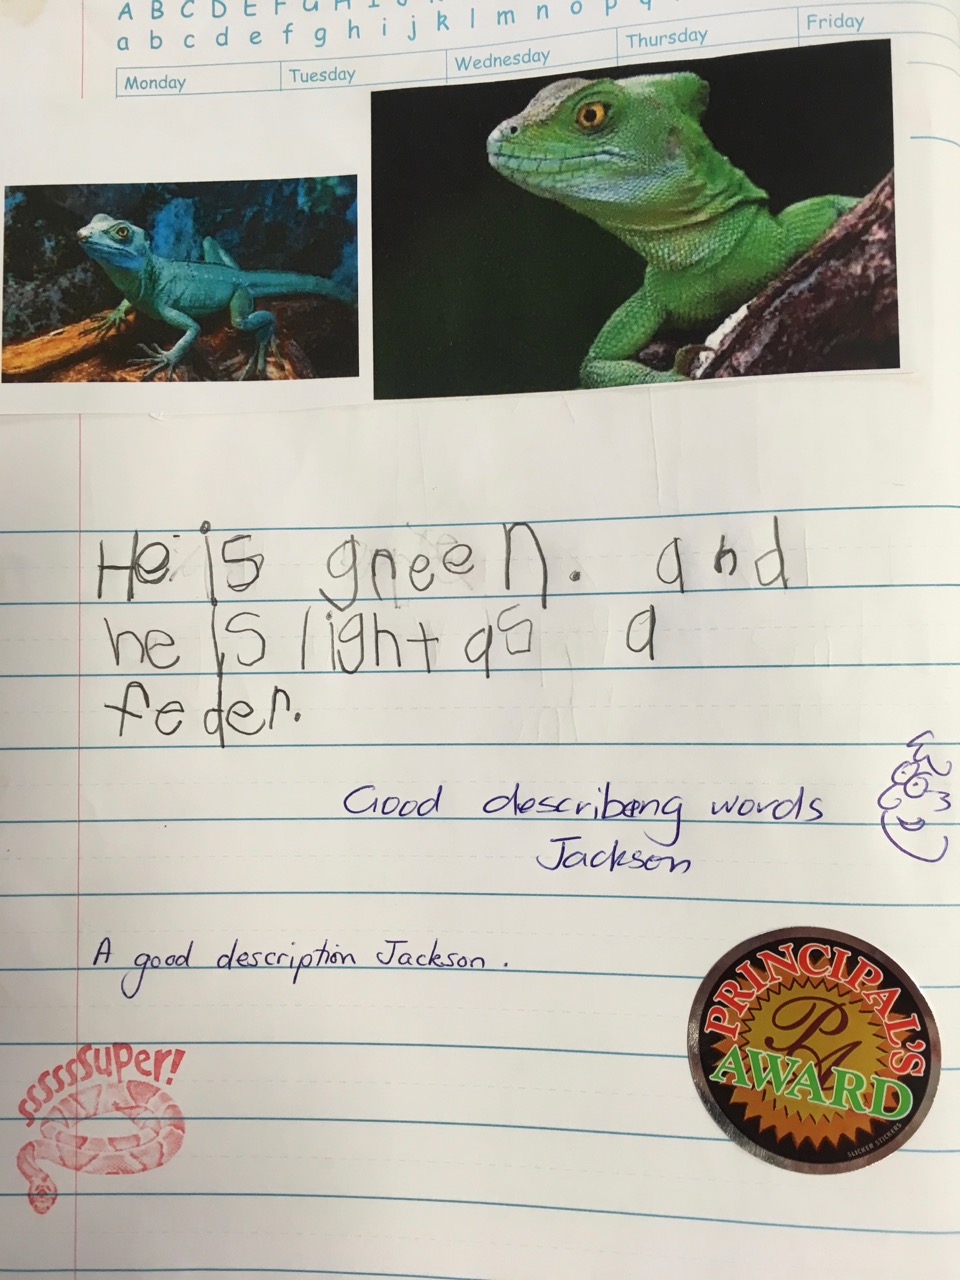 A B C D E F G H I J
a b c d e f g h i j k l m n o p q
Monday Tuesday Wednesday Thursday Friday
He is green. and
he is light as a
feder.
Good describing words
Jackson
A good description Jackson.
sssssSuper!
PRINCIPAL'S
PA
AWARD
SLICKER STICKERS